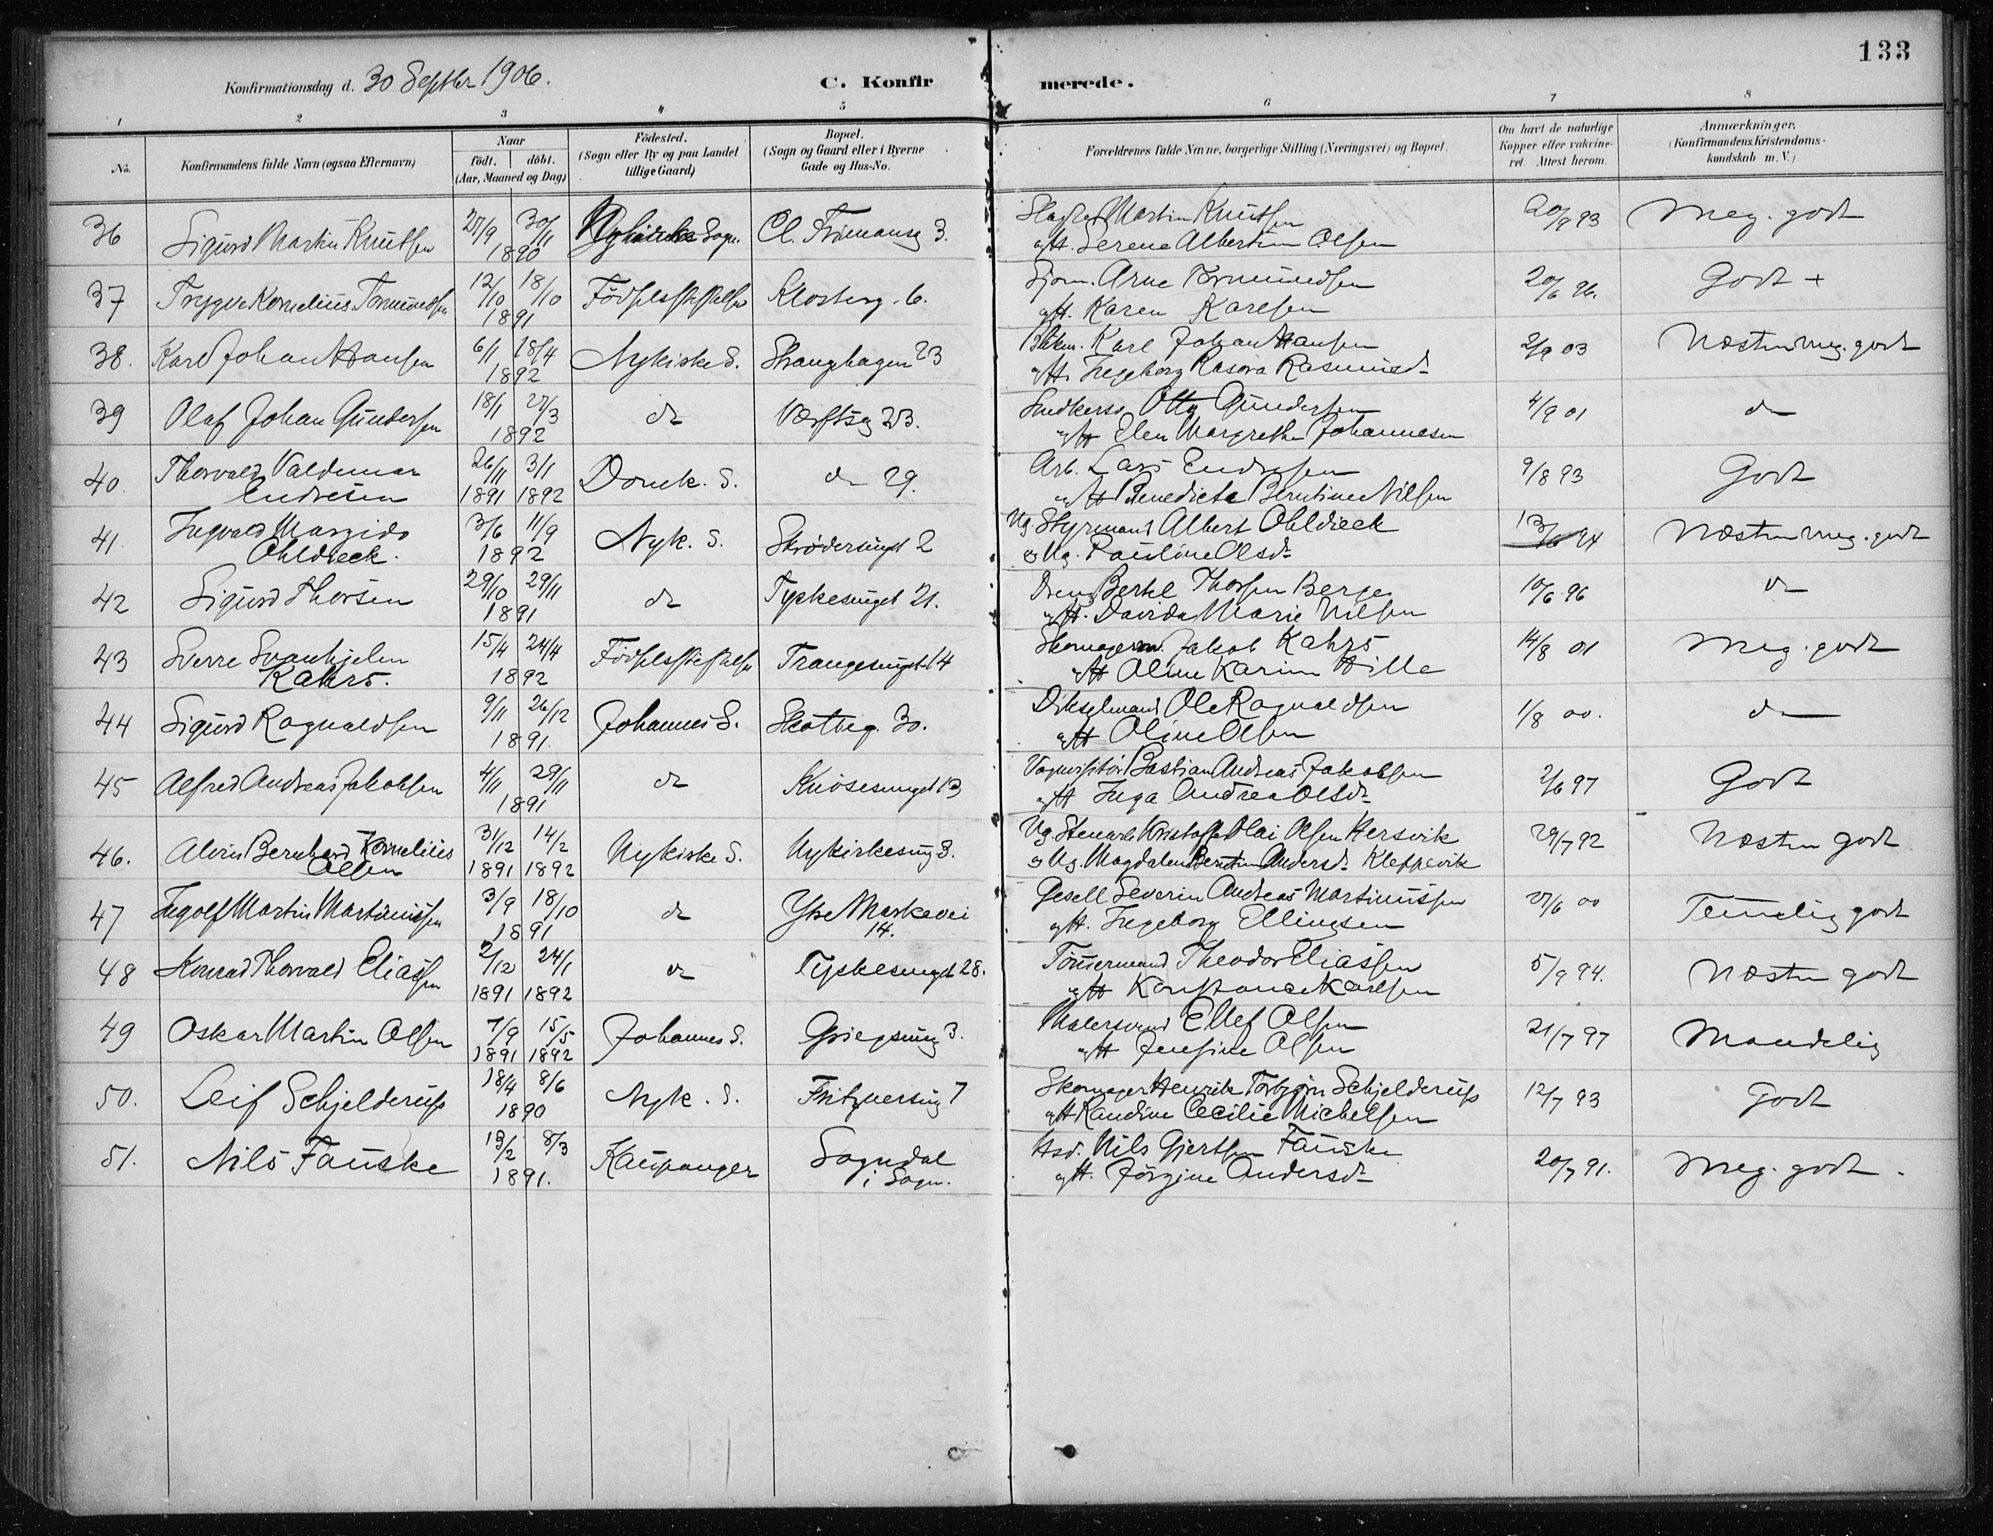 133
Konfirmationsdag d. 30 Septbr 1906.
C. Konfirmerede.
1 2 3 4 5 6 7 8
No.
Konfirmandens fulde Navn (ogsaa Efternavn)
Naar
födt. | döbt.
(Aar, Maaned og Dag)
Födested.
(Sogn eller By og paa Landet
tillige Gaard)
Bopæl.
(Sogn og Gaard eller i Byerne
Gade og Hus-No.
Forældrenes fulde Navne, borgerlige Stilling (Næringsvei) og Bopæl.
Om havt de naturlige
Kopper eller vakcine-
ret. Attest herom.
Anmærkninger.
(Konfirmandens Kristendoms-
kundskab m. V.)
36 Sigurd Martin Knutsen 27/9 30/11 1890 Nykirke Sogn. Cl. 3. Martin Knutsen 20/9 93 Meg. godt
g/ft. Serene Albertine Olsen
37 Trygve Kornelius Tormundsen 12/10 18/10 1891 Fødselsstiftelsen Klosterg. 6. Sjøm. Arne Tormundsen 20/6 96. Godt +
g/ft. Karen Karlsen
38. Karl Johan Hansen 6/1 18/4 1892 Nykirke S. Stranghagen 23 Karl Johan Hansen 2/9 03 Næsten meg. godt
g/ft. Ingeborg Rasmusd.
39 Olaf Johan Gundersen 18/1 27/3 1892 do Værftsg 23. Snedkersv. Otto Gundersen 4/9 01 do
g/ft Elen Margrethe Johannesen
40. Thorvald Valdemar 26/11 3/1 Domk. S. do 29. Arb. Lars Endresen 9/8 93 Godt
Endresen 1891 1892 g/ft Benedicte Berntine Nilsen
41. Ingvald Margido 3/6 11/9 Nyk. S. Skrødersmuget 2 Ug. Styrmand Albert Ohldieck 13/6 94 Næsten meg. godt
Ohldieck. 1892 og Ug. Pauline Olsd.
42 Sigurd Thorsen 29/10 29/11 1891 do Tyskesmuget 21. Dreng Bertel Thorsen Berge 10/6 96 do
g/ft. Davida Marie Nilsen
43 Sverre Svanhjelm 15/4 24/4 Fødselsstiftelsen Trangesmuget 14 Skomagersv. Jakob Kahrs 14/8 01 Meg. godt
Kahrs. 1892 g/ft Oline Karine Hille
44 Sigurd Ragnvaldsen 9/11 26/12 1891. Johannes S. Skotteg. 30. Ole Ragnvaldsen 1/8 00. do
g/ft Oline Olsen
45 Alfred Andreas Jakobsen 4/11 29/11 1891 do Knøsesmuget 13 Bastian Andreas Jakobsen 2/6 97 Godt
g/ft Inga Andrea Olsd.
46. Alvin Bernhard Kornelius 31/12 14/2 Nykirke S. Nykirkesmug 3. Ug. Steward Kristoffer Olai Olsen Hersvik 29/7 92 Næsten godt
Olsen 1891 1892 og Ug. Magdalene Berntine Andersd. Kleppevik
47 Ingolf Martin Martinussen 3/9 18/10 1891 do Ytre Markevei 14. Gesell Severin Andreas Martinussen 27/6 00 Temmelig godt
g/ft. Ingeborg Ellingsen
48 Konrad Thorvald Eliassen 2/12 24/1 do Tyskesmuget 28. Tømmermand Theodor Eliassen 5/9 94. Næsten godt
1891 1892 g/ft Konstance Karlsen
49 Oskar Martin Olsen 7/9 15/5 Johannes S. Griegsmug 3. Malersvend Ellef Olsen 21/7 97 Maadelig
1891 1892 g/ft Jensine Olsen
50. Leif Schjelderup 18/4 8/6 1890 Nyk. S. Fritznersmug 7 Skomager Henrik Torbjørn Schjelderup 12/7 93 Godt
g/ft Randine Cecilie Michelsen
51. Nils Fauske 13/2 8/3 1891. Kaupanger Sogndal i Sogn. Hsd. Nils Gjertsen Fauske 20/7 91. Meg. godt.
g/ft. Jørgine Andersd.